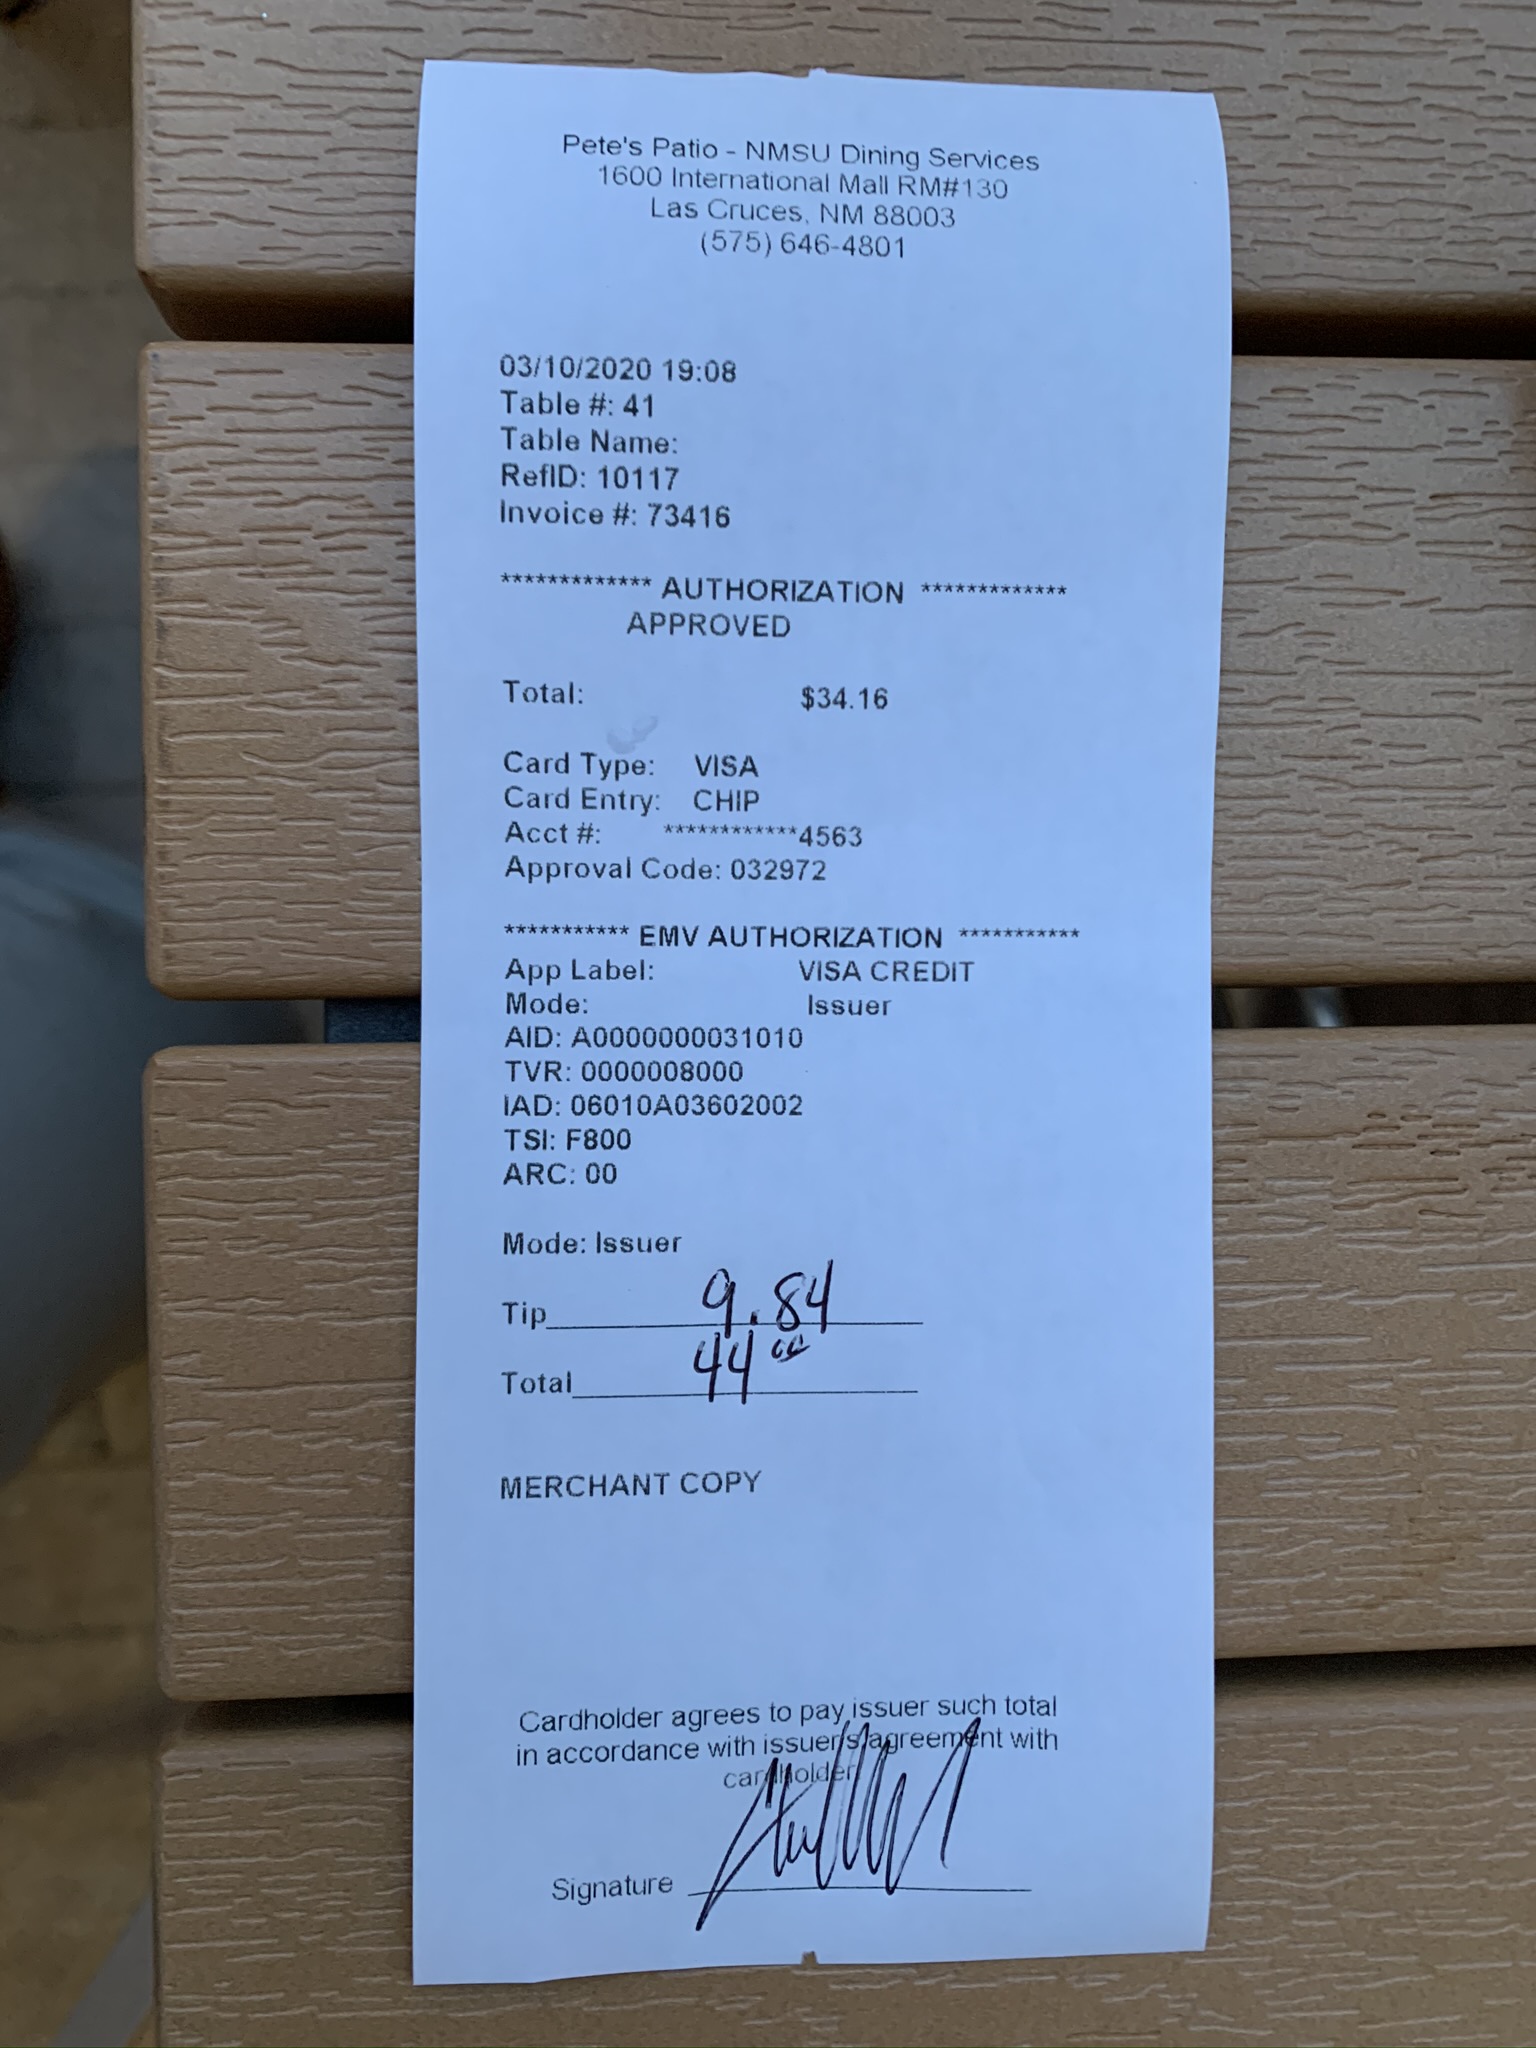 Pete's Patio - NMSU Dining Services
1600 International Mall RM#130
Las Cruces, NM 88003
(575) 646-4801
03/10/2020 19:08
Table #: 41
Table Name:
RefID: 10117
Invoice #: 73416
************* AUTHORIZATION *************
APPROVED
Total: $34.16
Card Type: VISA
Card Entry: CHIP
Acct #: ************4563
Approval Code: 032972
*********** EMV AUTHORIZATION ***********
App Label: VISA CREDIT
Mode: Issuer
AID: A0000000031010
TVR: 0000008000
IAD: 06010A03602002
TSI: F800
ARC: 00
Mode: Issuer
Tip 9.84
Total 44 00
MERCHANT COPY
Cardholder agrees to pay issuer such total
in accordance with issuer's agreement with
cardholder
Signature